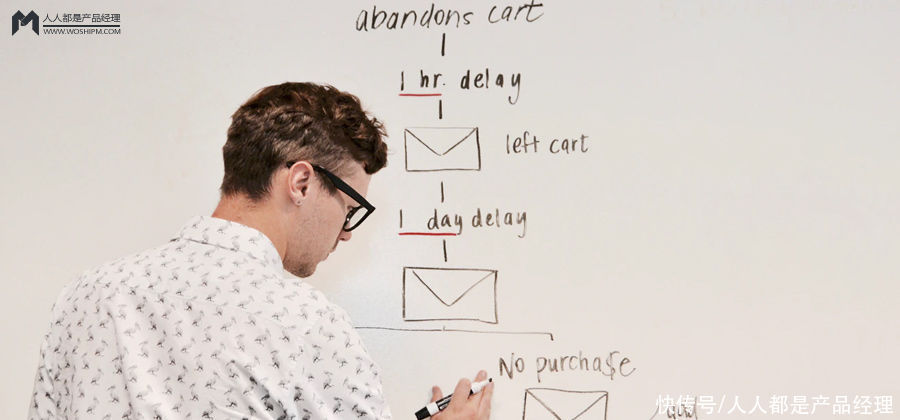 人人都是产品经理
WWW.WOSHIPM.COM
abandons cart
1 hr. delay
left cart
1 day delay
No purchase
快传号/人人都是产品经理